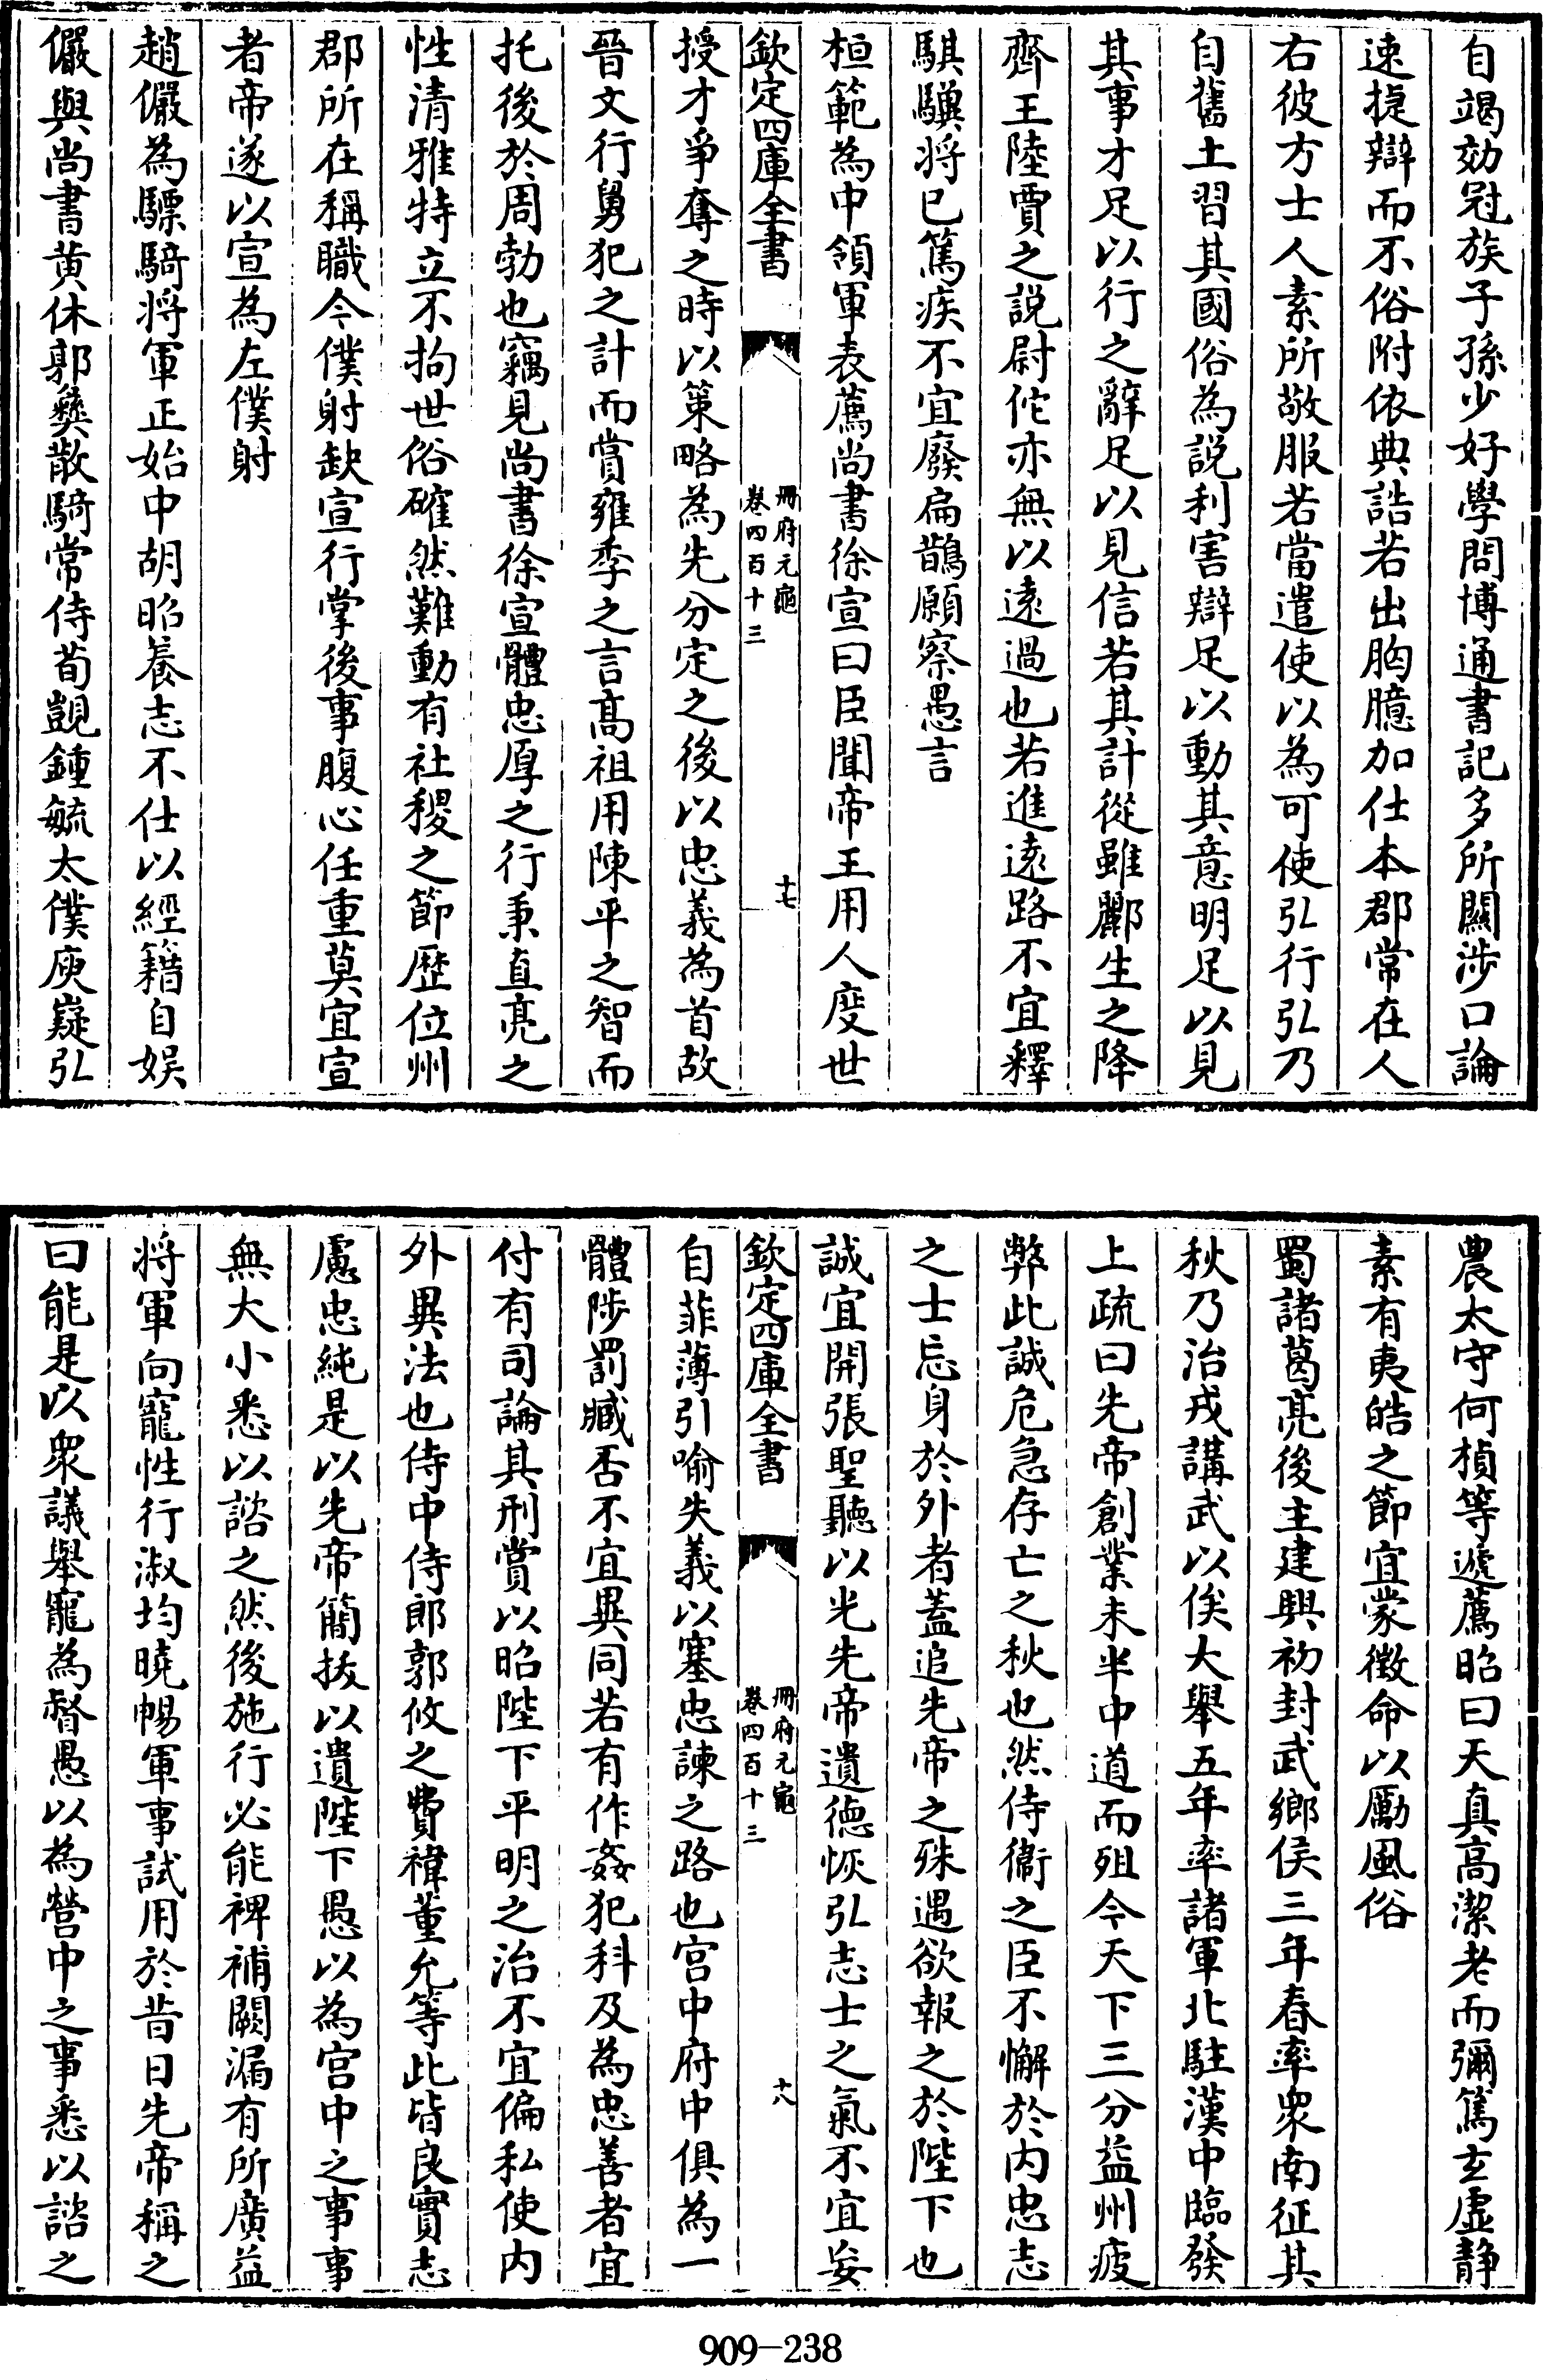 自竭効冠族子孫少好學問博通書記多所闗涉口論
速捷辯而不俗附依典誥若出胸臆加仕本郡常在人
右彼方士人素所敬服若當遣使以為可使弘行弘乃
自舊土習其國俗為説利害辯足以動其意明足以見
其事才足以行之辭足以見信若其計從雖酈生之降
齊王陸賈之説尉佗亦無以逺過也若進逺路不宜釋
騏驥将已篤疾不宜廢扁鵲願察愚言
桓範為中領軍表薦尚書徐宣曰臣聞帝王用人度世
欽定四庫全書
冊府元龜
卷四百十三
十七
授才爭奪之時以策略為先分定之後以忠義為首故
晉文行舅犯之計而賞雍季之言髙祖用陳平之智而
托後於周勃也竊見尚書徐宣體忠厚之行秉直亮之
性清雅特立不拘世俗確然難動有社稷之節歴位州
郡所在稱職今僕射缺宣行掌後事腹心任重莫宜宣
者帝遂以宣為左僕射
趙儼為驃騎将軍正始中胡昭養志不仕以經籍自娱
儼與尚書黄休郭彝散騎常侍荀顗鍾毓太僕庾嶷弘
農太守何楨等遞薦昭曰天真高潔老而彌篤玄虚静
素有夷皓之節宜蒙徴命以勵風俗
蜀諸葛亮後主建興初封武鄉侯三年春率衆南征其
秋乃治戎講武以俟大舉五年率諸軍北駐漢中臨發
上疏曰先帝創業未半中道而殂今天下三分益州疲
弊此誠危急存亡之秋也然侍衞之臣不懈於内忠志
之士忘身於外者蓋追先帝之殊遇欲報之於陛下也
誠宜開張聖聽以光先帝遺德恢弘志士之氣不宜妄
欽定四庫全書
冊府元龜
卷四百十三
十八
自菲薄引喻失義以塞忠諫之路也宫中府中俱為一
體陟罰臧否不宜異同若有作姦犯科及為忠善者宜
付有司論其刑賞以昭陛下平明之治不宜偏私使内
外異法也侍中侍郎郭攸之費禕董允等此皆良實志
慮忠純是以先帝簡拔以遺陛下愚以為宫中之事事
無大小悉以諮之然後施行必能裨補闕漏有所廣益
将軍向寵性行淑均曉暢軍事試用於昔日先帝稱之
曰能是以衆議舉寵為督愚以為營中之事悉以諮之
909-238